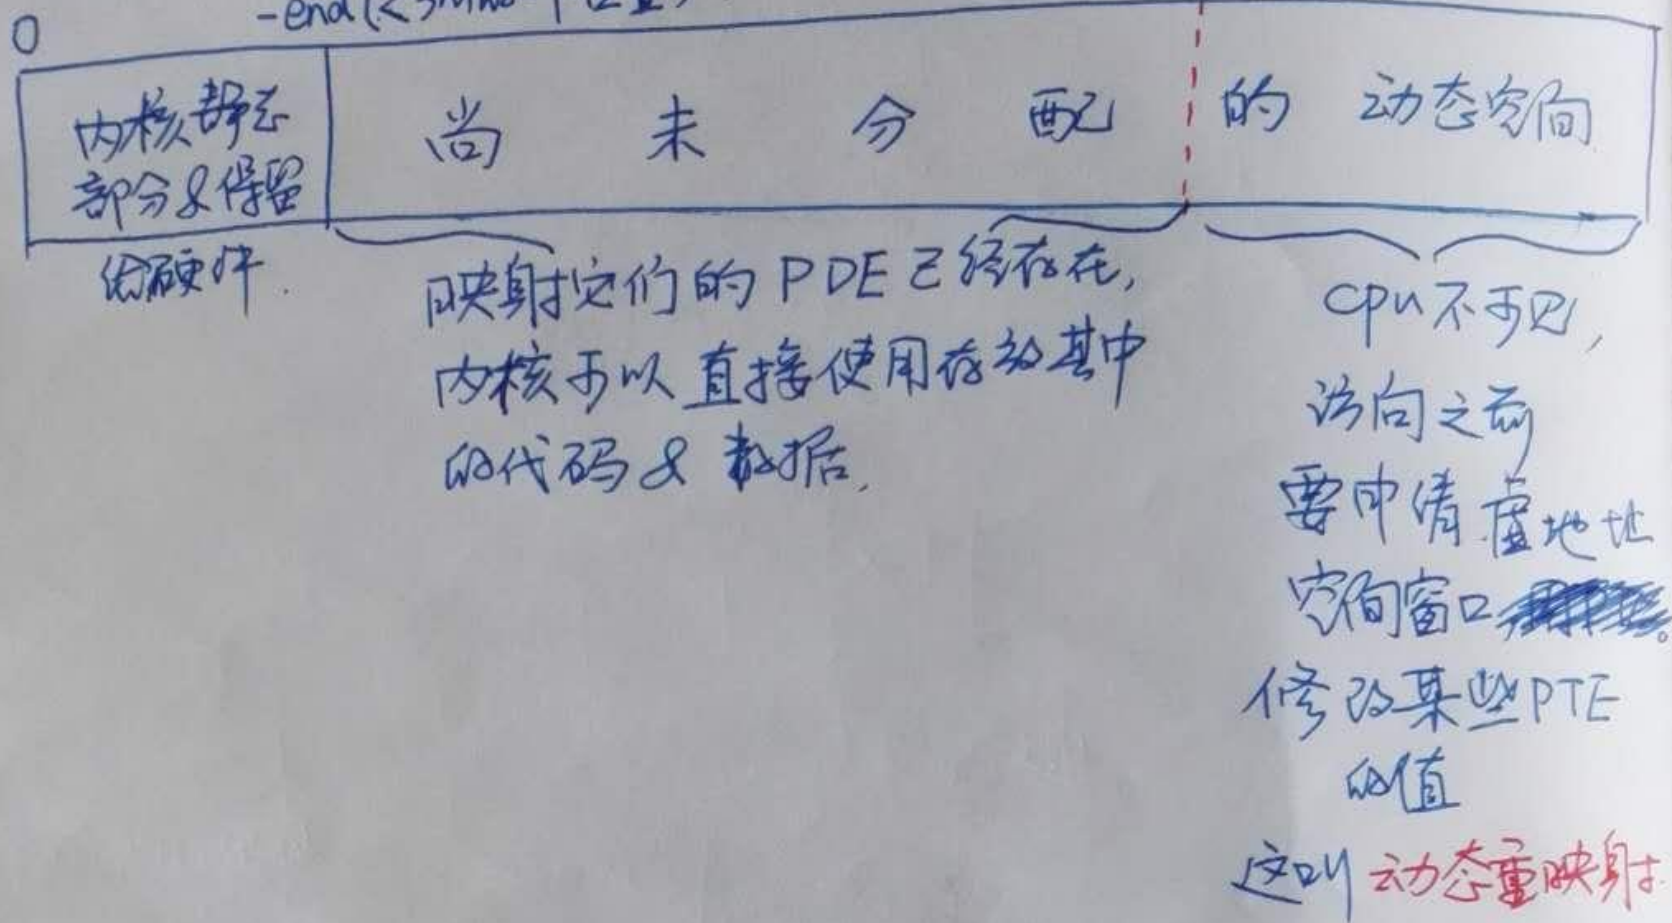 0
-end(<
内核静态 尚 未 分 配 的 动态空间
部分&保留
给硬件.
映射它们的PDE已经存在,
内核可以直接使用存放其中
的代码&数据.
cpu不可见,
访问之前
要申请虚地址
空间窗口。
修改某些PTE
的值
这叫动态重映射.